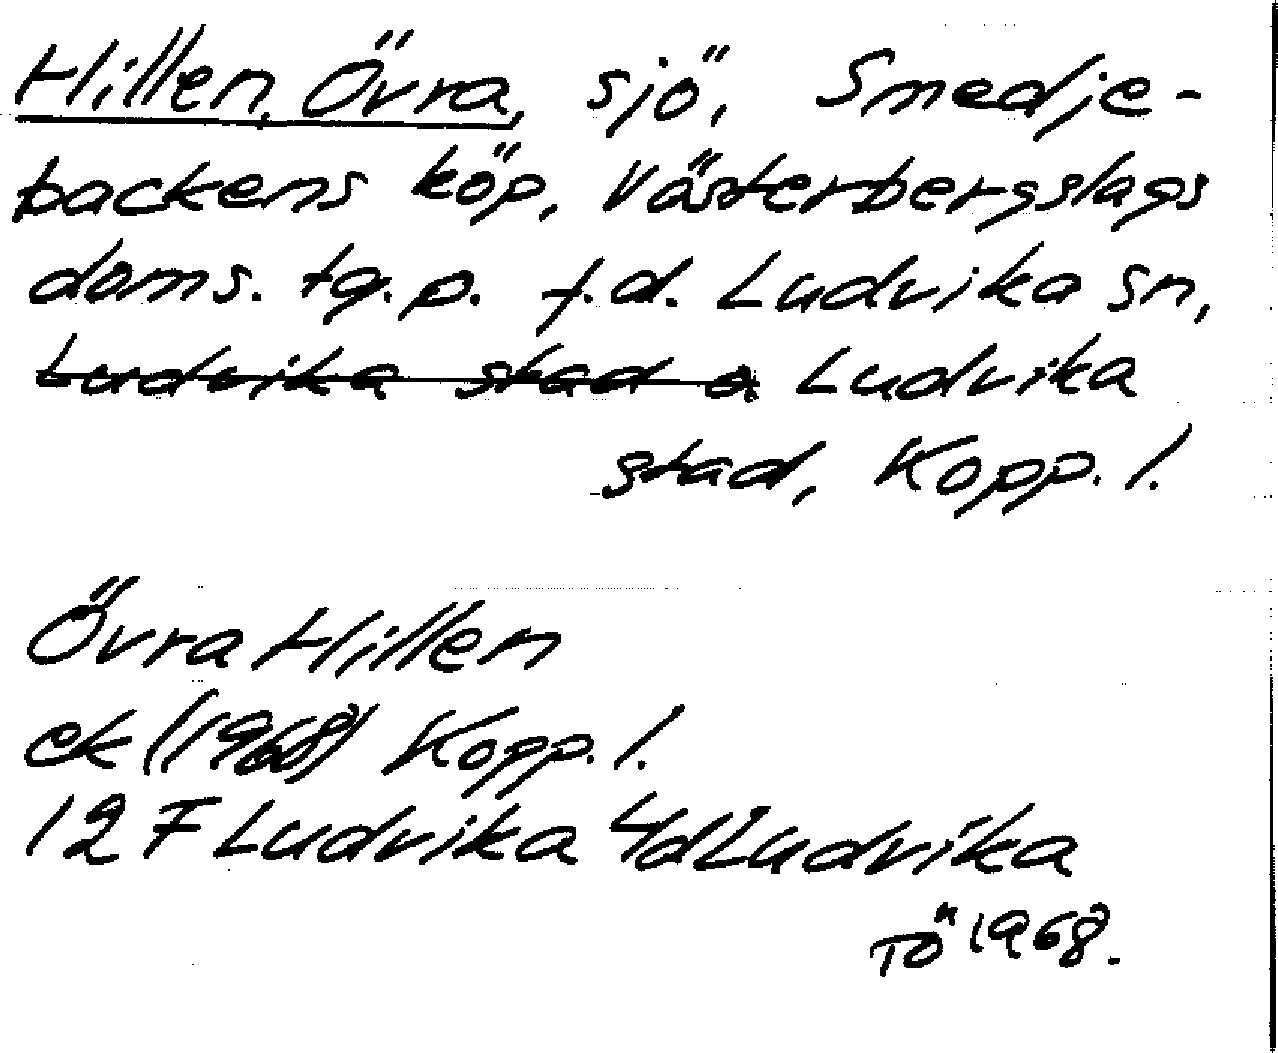 Hillen, Övra, sjö, Smedje-
backens köp, Västerbergslags
doms. tg. p. f.d. Ludvika sn,
Ludvika stad o. Ludvika
stad, Kopp. l.
Övra Hillen
ek (1968) Kopp. l.
12 F Ludvika 4d Ludvika
TÖ 1968.